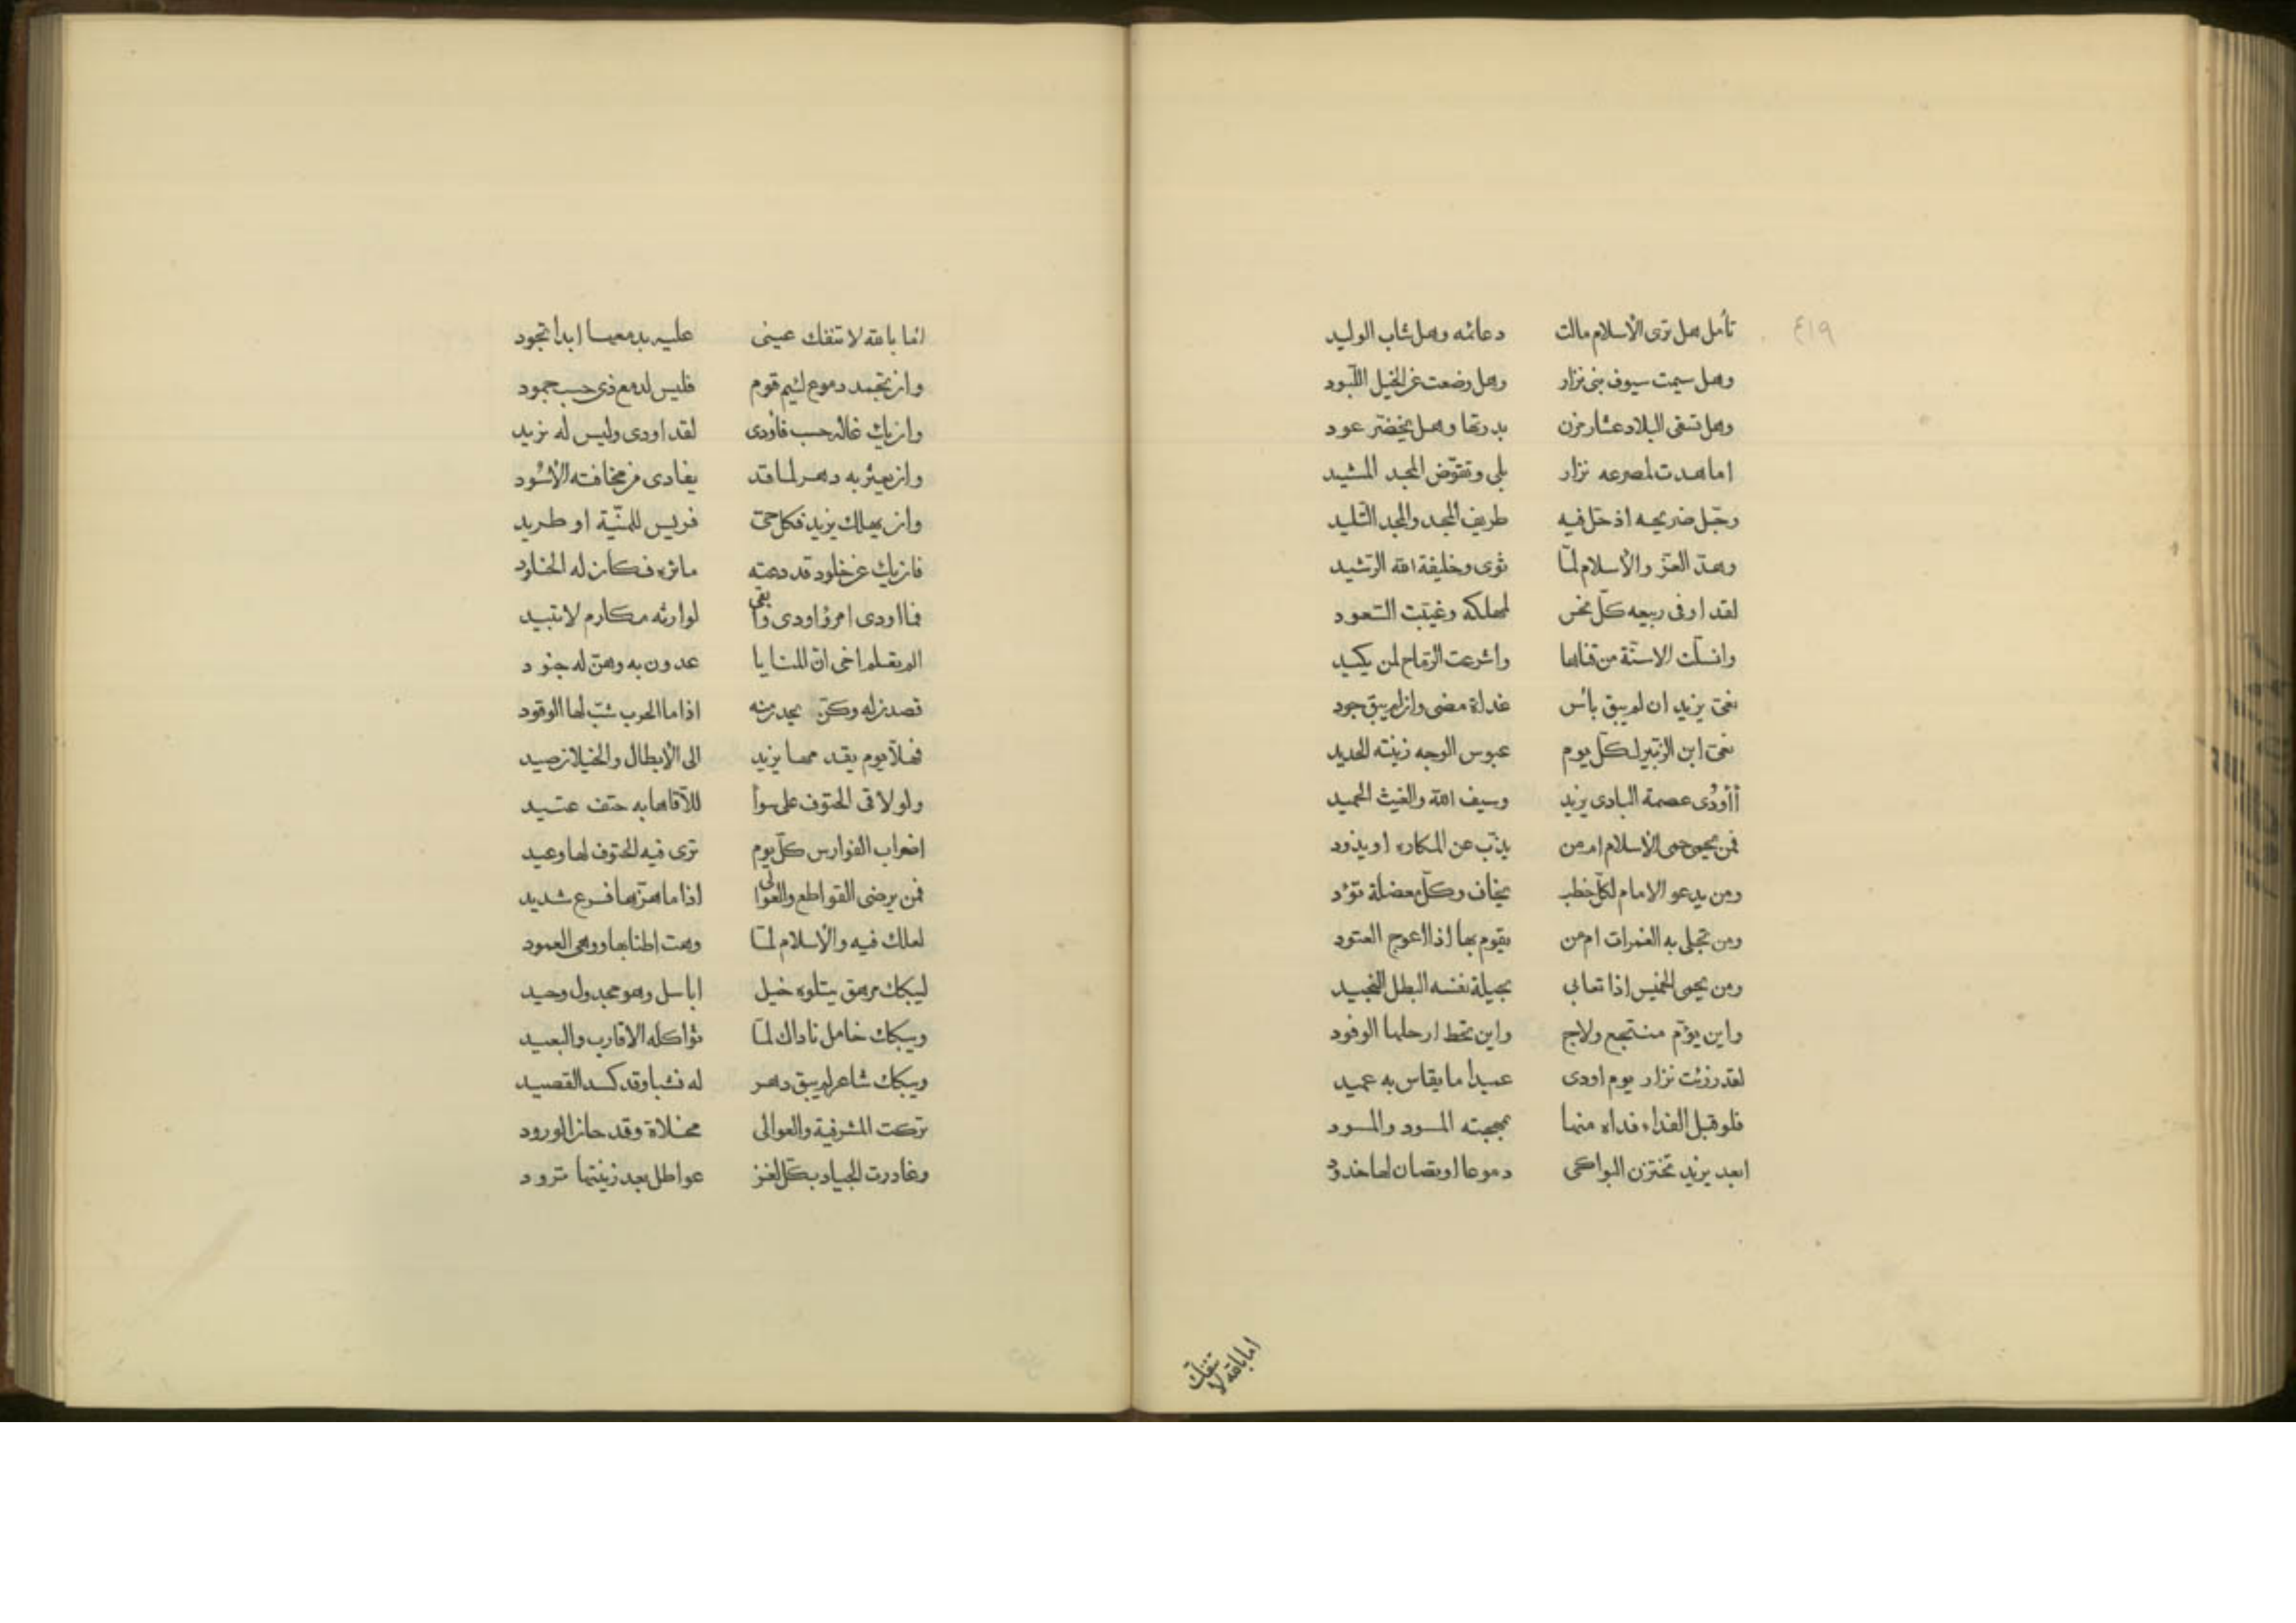 ٤١٩
تأمل هل ترى الأسلام مالت دعائمه وهل شاب الوليد
وهل سيمت سيوف بنى نزار وهل وضعت عن الخيل اللّبود
وهل تسقى البلاد عشار مزن بدرتها وهل يخضرّ عود
اما هدت لمصرعه نزار بلى وتقوّض المجد المشيد
وحّل ضريحه اذ حّل فيه طريف المجد والمجد التّليد
وهدّ العزّ والأسلام لمّا ثوى وخليفة الله الرّشيد
لقد اوفى ربيعه كلّ نحس لمهلكه وغيّبت السّعود
وانسلّت الاسنّة من قناها واشرعت الرّماح لمن يكيد
نعىّ يزيد ان لم يبق بأس غداة مضى وان لم يبق جود
نعىّ ابن الزّبير لكلّ يوم عبوس الوجه زينته الحديد
أأودى عصمة البادى يزيد وسيف الله والغيث الحميد
فمن يحمى حمى الاسلام ام من يذبّ عن المكاره او يذود
ومن يدعو الامام لكلّ خطب يخاف وكلّ معضلة تؤد
ومن تجلى به الغمرات ام من يقوم بها اذا اعوج العتود
ومن يحمى الخميس إذا تعايى بحيلة نفسه البطل النّجيد
واين يؤمّ منتجع ولاج واين تحط ارحلها الوفود
لقد رزئت نزار يوم اودى عميدا ما يقاس به عميد
فلو قبل الفداء فداه منها بمهجته المسود والمسود
ابعد يزيد تختزن البواكى دموعا او يصان لها خدود
اما بالله لا تنفك
اما بالله لا تنفك عينى عليه بدمعها ابدا تجود
وان تجمد دموع لئيم قوم فليس لدمع ذى حسب جمود
وان يك غاله حسب فأودى لقد اودى وليس له نزيد
وان يعثر به دهر لما قد يفادى من مخافته الأسود
وان يهلك يزيد فكل حىّ فريس للمنّية او طريد
فان يك عن خلود قد دعته مآثره فكان له الخلود
فما اودى امرؤ اودى وأبقى لوارثه مكارم لا تبيد
الم يعلم اخى انّ المنايا عدون به وهنّ له جنود
قصدن له وكنّ يحدن منه اذا ما الحرب شبّ لها الوقود
فهلّا يوم يقدمها يزيد الى الأبطال والخيلان صيد
ولو لاقى الحتوف على سوأ للآقاها به حتف عتيد
اضراب الفوارس كلّ يوم ترى فيه الحتوف لها وعيد
فمن يرضى القواطع والعوالى اذا ما هزّها فرع شديد
لعلك فيه والأسلام لمّا وهت اطنابها ووهى العمود
ليبكك مرهق يتلوه خيل اباسل وهو مجدول وحيد
ويبكك خامل ناداك لمّا تواكله الاقارب والبعيد
ويبكك شاعر لم يبق دهر له نشبا وقد كسد القصيد
تركت المشرفية والعوالى محلاة وقد حان الورود
وغادرت الجياد بكلّ لغز عواطل بعد زينتها ترود